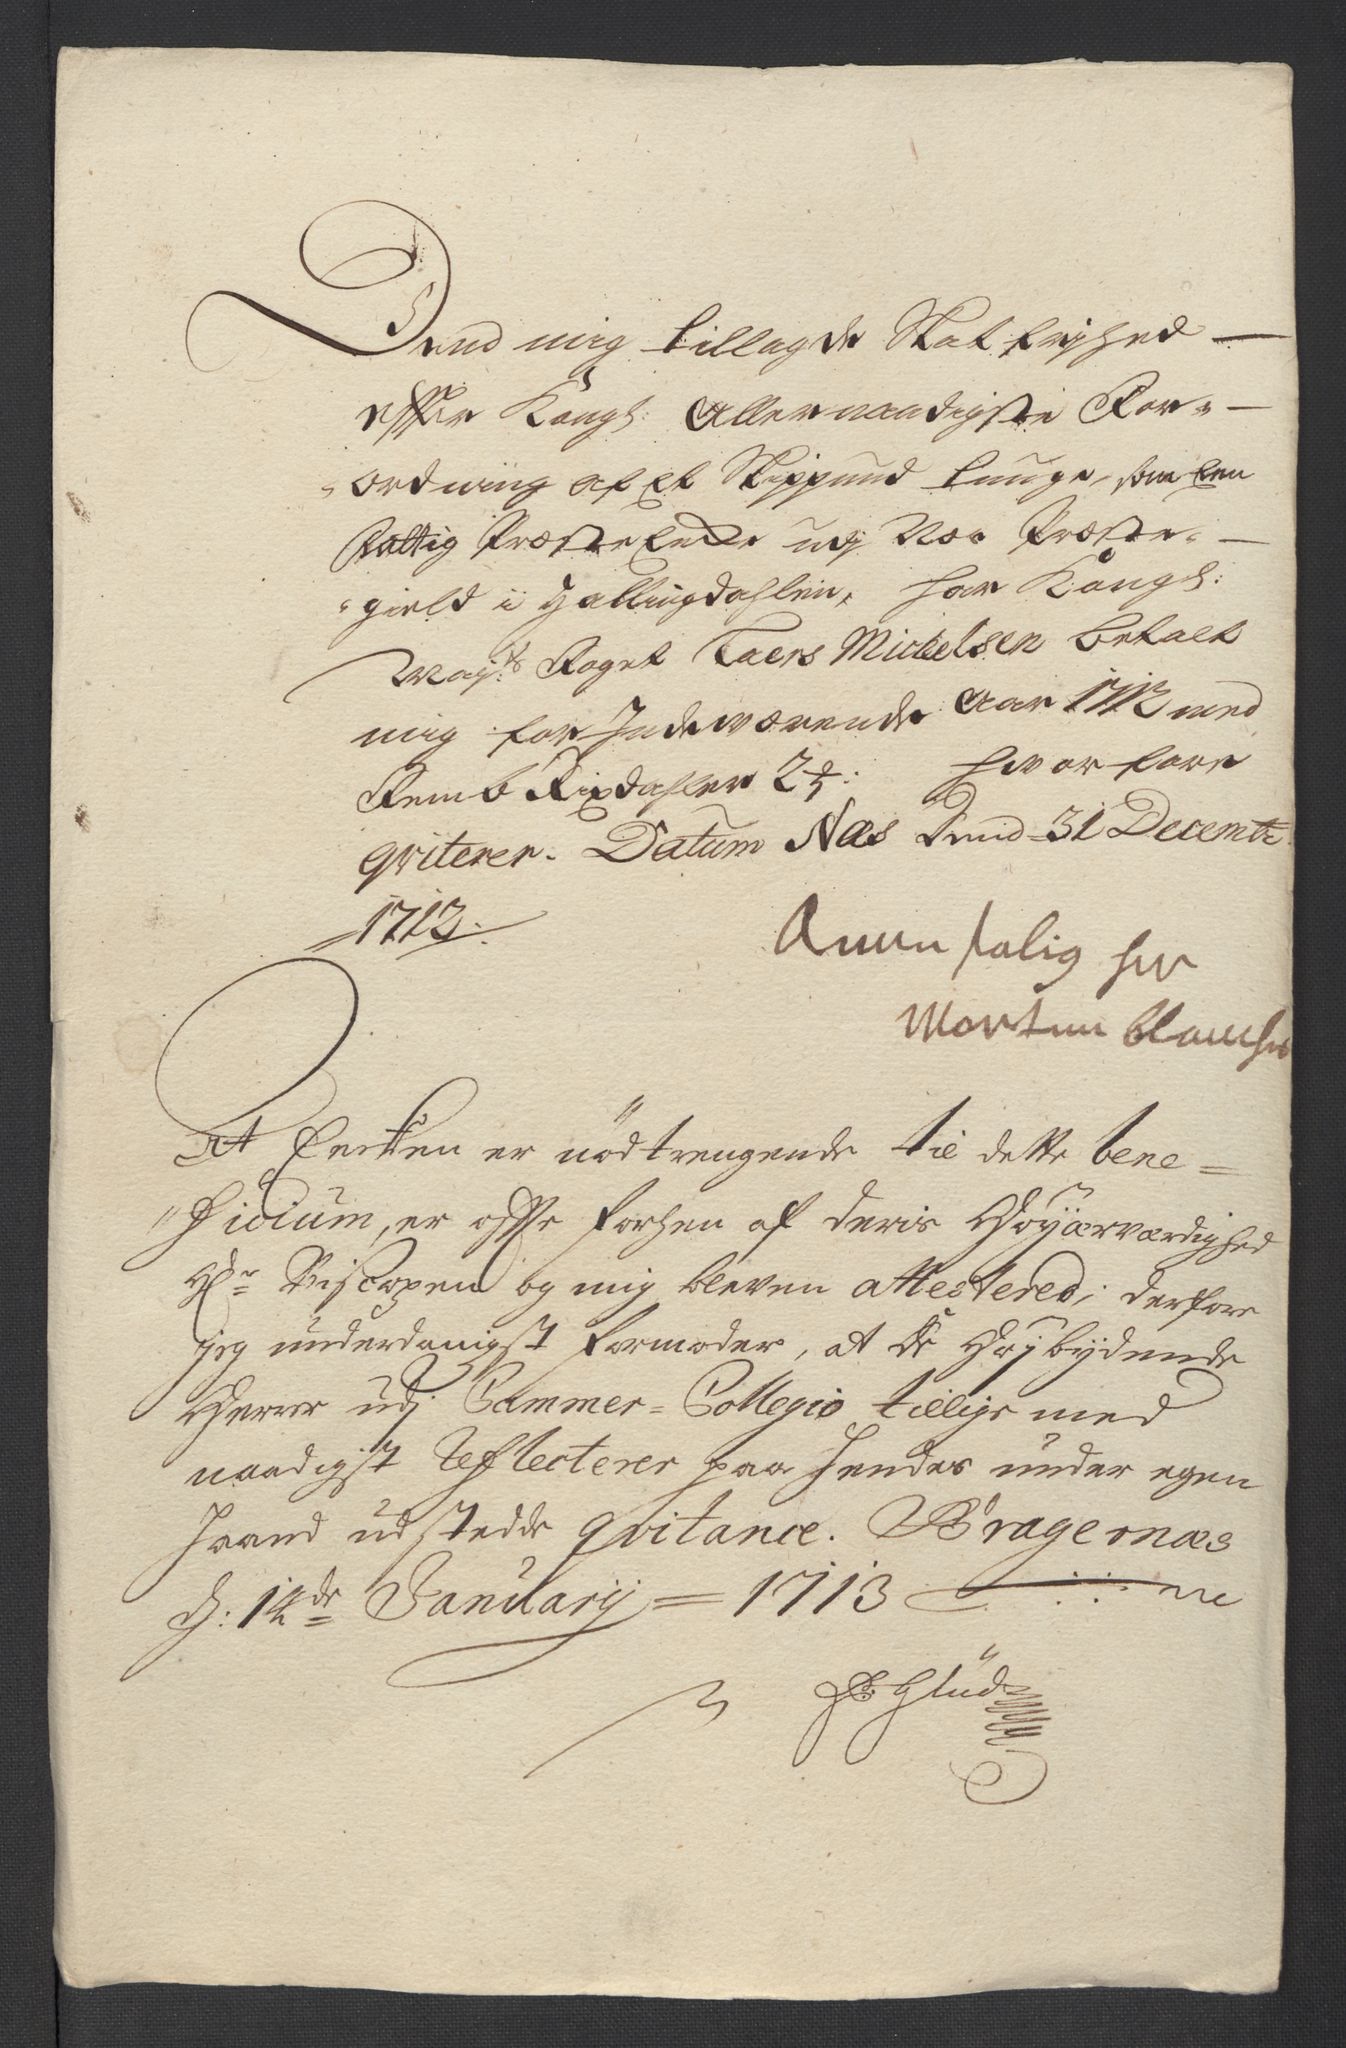 Dend mig tillagde Skat frihed —
effter Kongl: Allernaadigste For=
=ordning af Et Skippund tunge, som Een
Fattig Præste Encke udj Næs Præste=
=gield i Hallingdahlen, har Kongl:
Mayts Foget Laers Michelsen betalt
mig for Indeværende Aar 1712 med
Femb Rixdahler 2 hvorfore
qviterer. Datum Næs Dend 31 Decembr
1712.
Anne salig her
Morten
At Encken er nödtrengende til dette bene=
"ficium, er offte forhen af deris Höyærværdighed
Hr Biscopen og mig bleven attestered; derfore
jeg underdanigst formoder, at de Höybydende
Herrer udj Cammer=Collegio tillige med
naadigst reflecterer paa hendes under egen
haand udstedde qvitance. Bragernæs
d: 12de Januarij = 1713
Glud